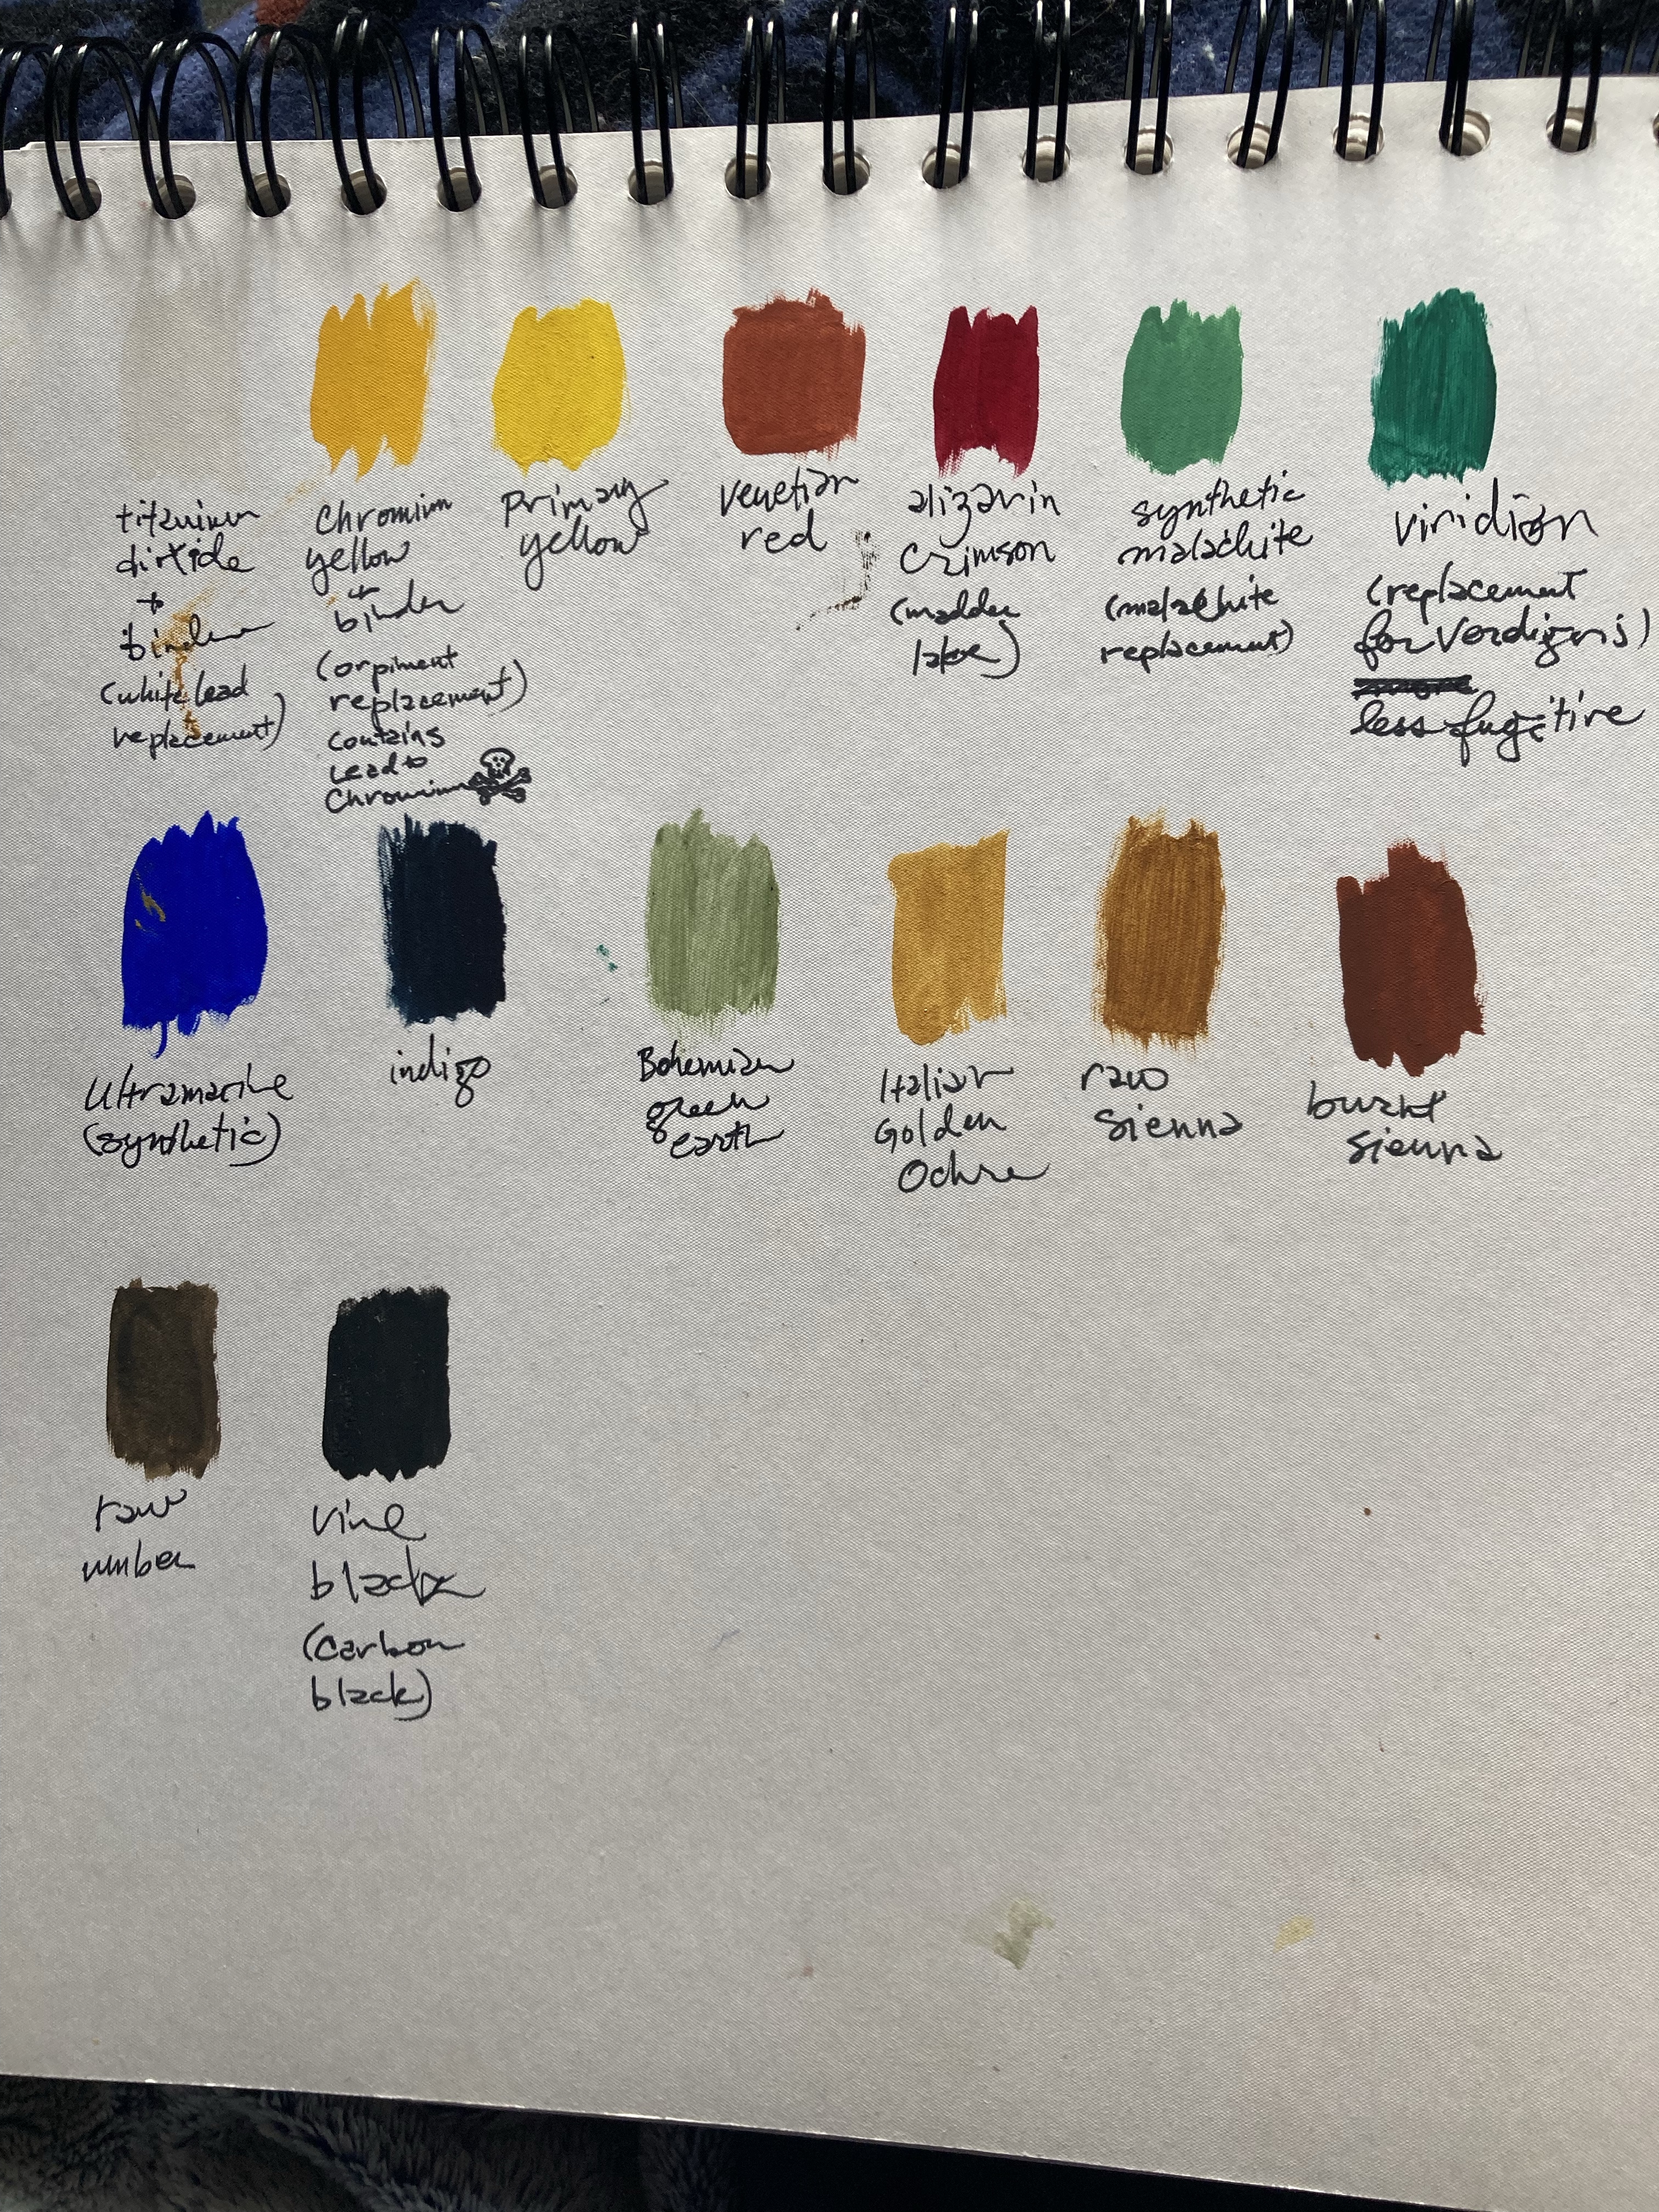 titanium
dioxide
+
binder
(white lead
replacement)
Chromium
yellow
+
binder
(orpiment
replacement)
contains
lead +
Chromium
Primary
yellow
Venetian
red
alizarin
Crimson
(madder
lake)
synthetic
malachite
(malachite
replacement)
viridian
(replacement
for Verdigris)
less fugitive
Ultramarine
(synthetic)
indigo
Bohemian
green
earth
Italian
Golden
Ochre
raw
sienna
burnt
sienna
raw
umber
Vine
black
(carbon
black)